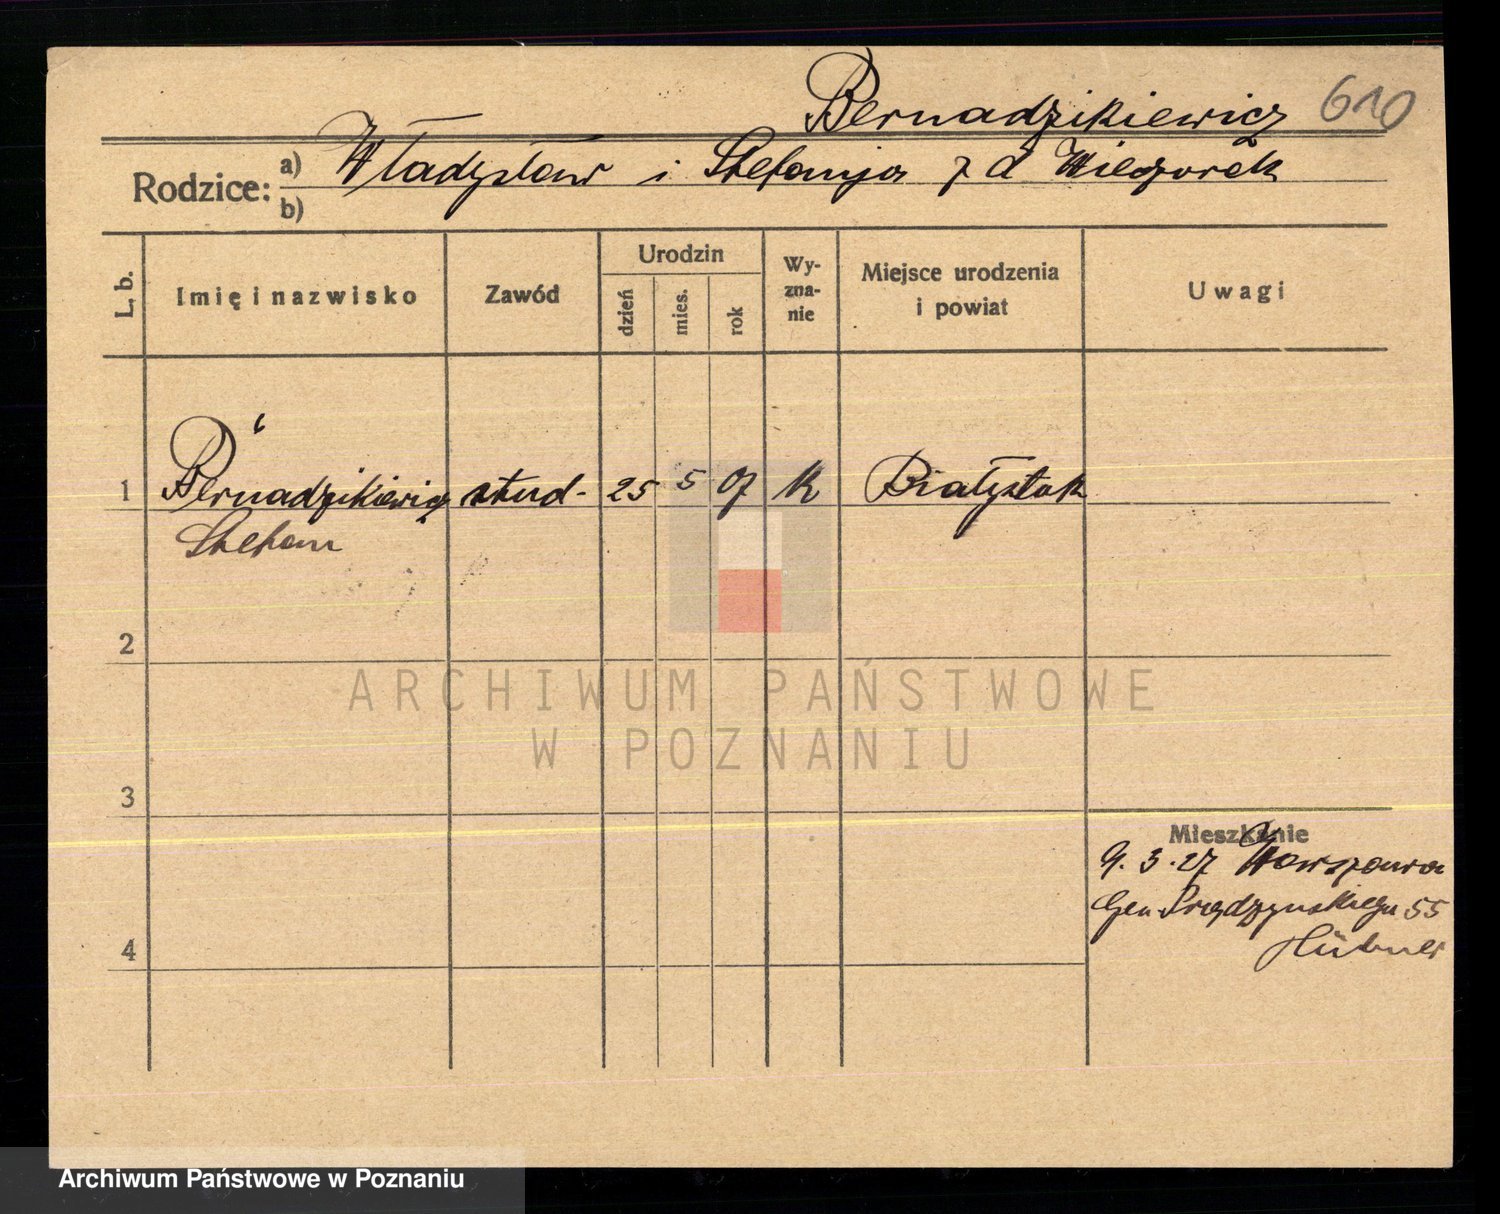 Bernadzikiewicz 610
Rodzice: a) Władysław i Stefanja z d Wieczorek
b)
L. b. Imię i nazwisko Zawód Urodzin dzień mies. rok Wy-zna-nie Miejsce urodzenia i powiat Uwagi
1 Bernadzikiewicz stud- 25 5 07 K Białystok
Stefan
2
ARCHIWUM PAŃSTWOWE
W POZNANIU
3
Mieszkanie
9. 3. 27 Warszawa
Gen Prądzynskiego 55
Hübner
4
Archiwum Państwowe w Poznaniu